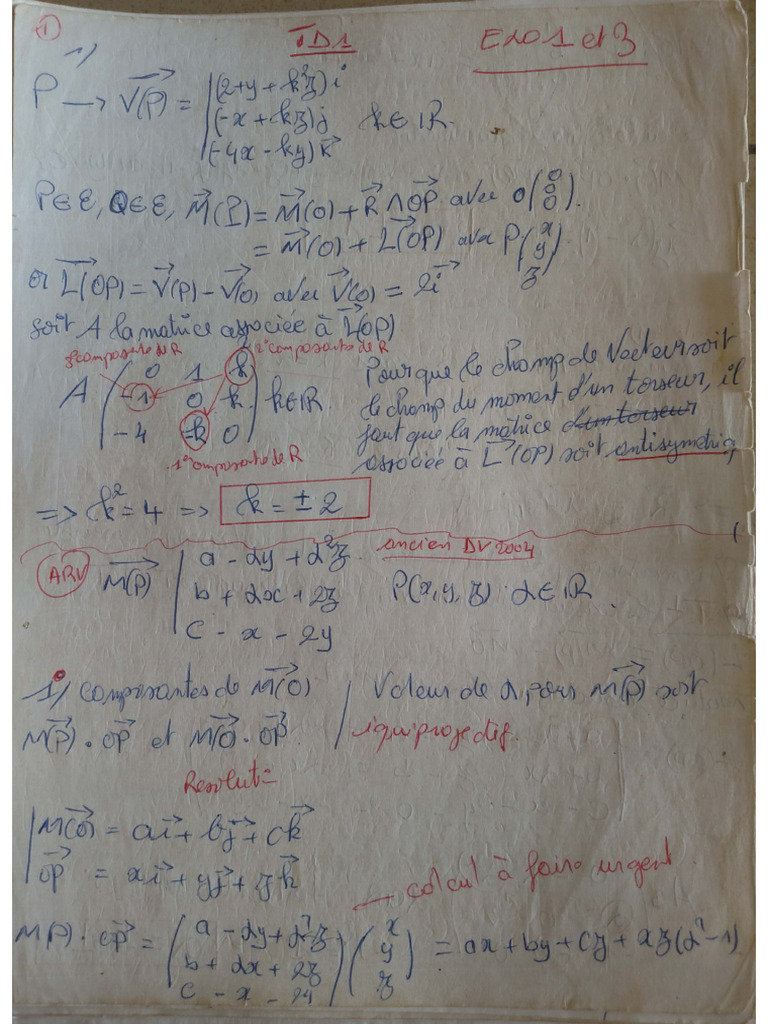 1
TD1
Exo 1 et 3
1)
P → V(P) = | (2+y+k²z) i
(-x+kz) j k∈ℝ.
(-4x-ky) k
P∈E, Q∈E, M(P) = M(O) + R ∧ OP avec O(0 0 0).
= M(O) + L(OP) avec P(x y z)
or L(OP) = V(P) - V(O) avec V(O) = 2i
soit A la matrice associée à L(OP)
3e composante de R 2e composante de R
A ( 0 1 k²
-1 0 k
-4 -k 0 ) k∈ℝ
1e composante de R
Pour que le champ de Vecteur soit
le champ du moment d'un torseur, il
faut que la matrice d'un torseur
associée à L(OP) soit antisymétriq
=> k² = 4 => k = ± 2
ARV
M(P) | a - αy + α²z
b + αx + 2z
c - x - 2y
ancien DV 2004
P(x,y,z) α∈ℝ.
1°/ Composantes de M(O) / Valeur de α pour M(P) soit
M(P) • OP et M(O) • OP équiprojectif.
Resolut=
M(O) = ai + bj + ck
OP = xi + yj + zk
calcul à faire urgent
M(P) • OP = ( a - αy + α²z
b + αx + 2z
c - x - 2y ) ( x y z ) = ax + by + cz + xz(α²-1)